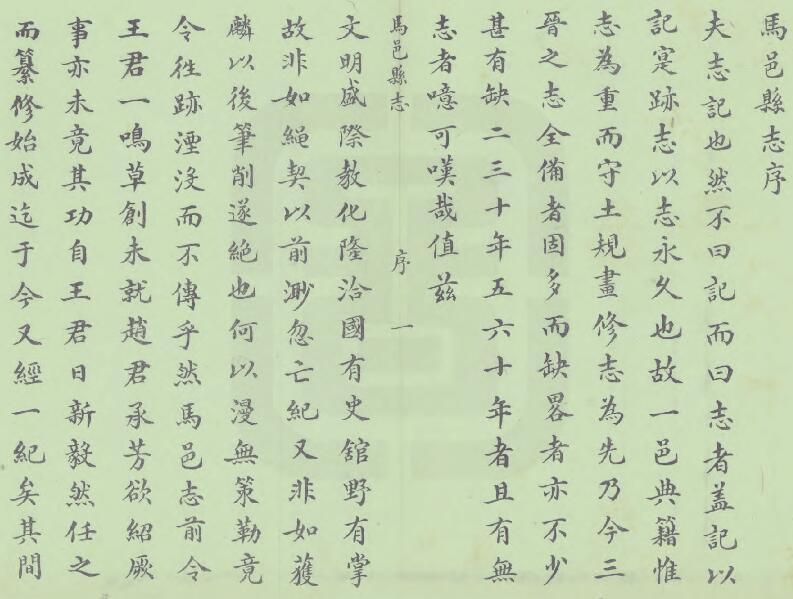 馬邑縣志序
夫志記也然不曰記而曰志者盖記以
記寔跡志以志永久也故一邑典籍惟
志為重而守土規畫修志為先乃今三
晉之志全備者固多而缺畧者亦不少
甚有缺二三十年五六十年者且有無
志者噫可嘆哉值兹
馬邑縣志 序 一
文明盛際教化隆洽國有史舘野有掌
故非如繩契以前渺忽亡紀又非如獲
麟以後筆削遂絕也何以漫無策勤竟
令徃跡湮沒而不傳乎然馬邑志前令
王君一鳴草創未就趙君承芳欲紹厥
事亦未竟其功自王君日新毅然任之
而纂修始成迄于今又經一紀矣其間